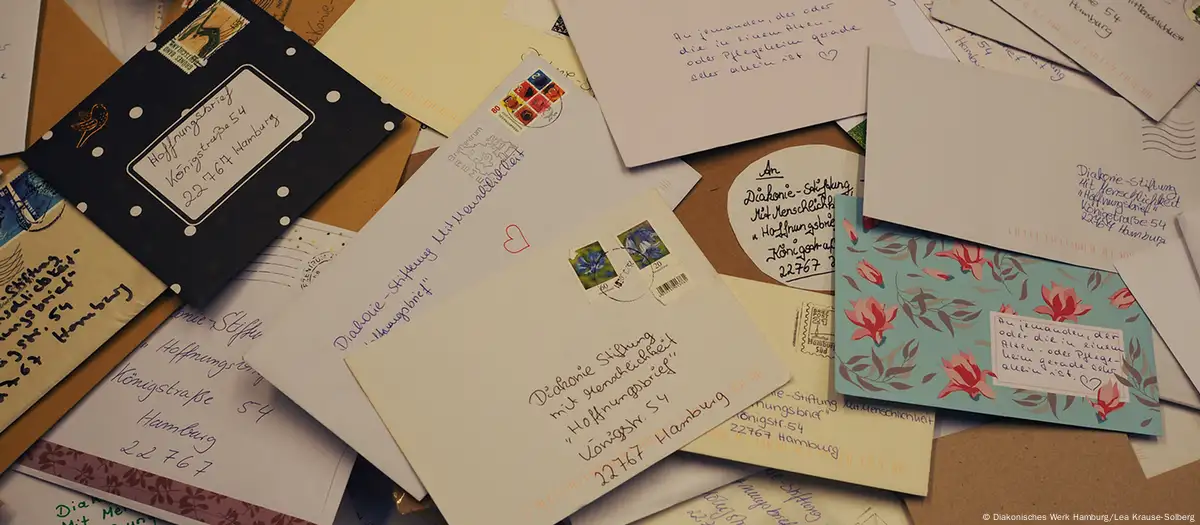 Hoffnungsbrief
Königstraße 54
22767 Hamburg
An jemanden, der oder
die in einem Alten-
oder Pflegeheim gerade
sehr allein ist ♡
Hamburg
80
Diakonie-Stiftung Mit Menschlichkeit
An
Diakonie-Stiftung
Mit Menschlichk
"Hoffnungsbrief"
Königstraß
22767
Diakonie-Stiftung
Mit Menschlichkeit
"Hoffnungsbrief"
Königstraße 54
22767 Hamburg
Stiftung
54
Hamburg
Hoffnungsbrief
Königstraße 54
Hamburg
22767
Diakonie Stiftung
mit Menschlichkeit
"Hoffnungsbrief"
Königstr. 54
22767 Hamburg
Hamburg
Süd
An jemanden, der
oder die in einem
Alten- oder Pflege-
heim gerade sehr
allein ist. ♡
-Stiftung Mit Menschlichkeit
nungsbrief"
Königstr. 54
22767 Hamburg
Stiftung
nungsbrief"
© Diakonisches Werk Hamburg/Lea Krause-Solberg